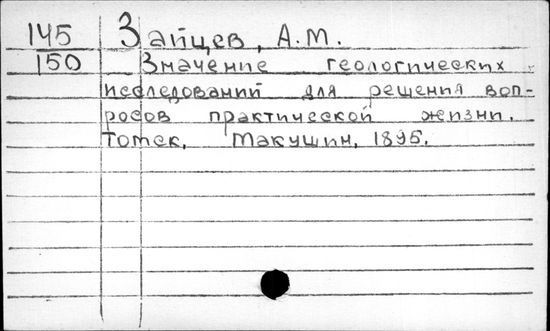 145 Зайцев, А.М.
150 Значение геологических
исследований для решения воп-
росов практической жизни.
Томск, Макушин, 1895.